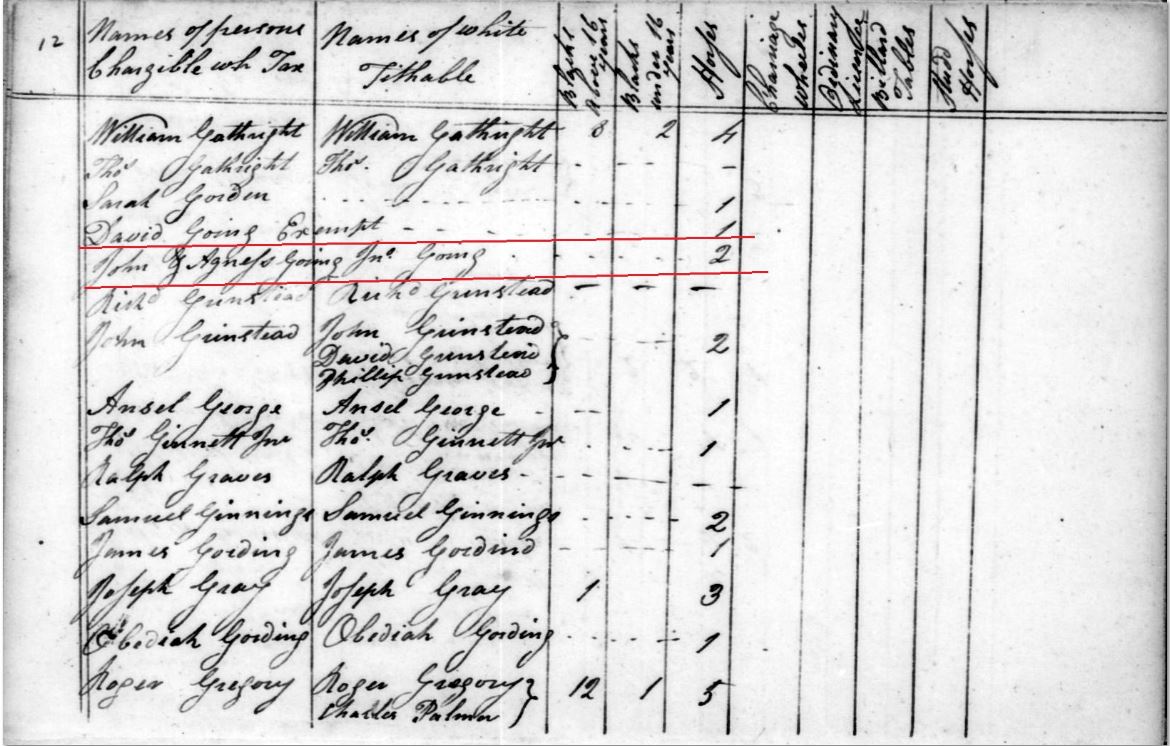 12 Names of persons Chargible wh Tax Names of white Tithable Blacks above 16 years Blacks under 16 years Horses Charriage wheeles Ordinary License Billiard Tables Stud Horses
William Gathright William Gathright 8 2 4
Thos Gathright Thos. Gathright - - - -
Sarah Gorden - - - - 1
David Going Exempt - - - 1
John & Agness Going Jno Going - - - 2
Richd Grinstead Richd Grinstead - - -
John Grinstead John Grinstead
David Grinstead } 2
Phillip Grinstead
Ansel George Ansel George - - 1
Thos Ginnett Junr Thos. Ginnett Junr - - - 1
Ralph Graves Ralph Graves - - - -
Samuel Ginnings Samuel Ginnings - - - 2
James Gording James Gording - - - 1
Joseph Gray Joseph Gray 1 3
Obediah Gording Obediah Gording - - - - 1
Roger Gregory Roger Gregory } 12 1 5
Charles Palmer }